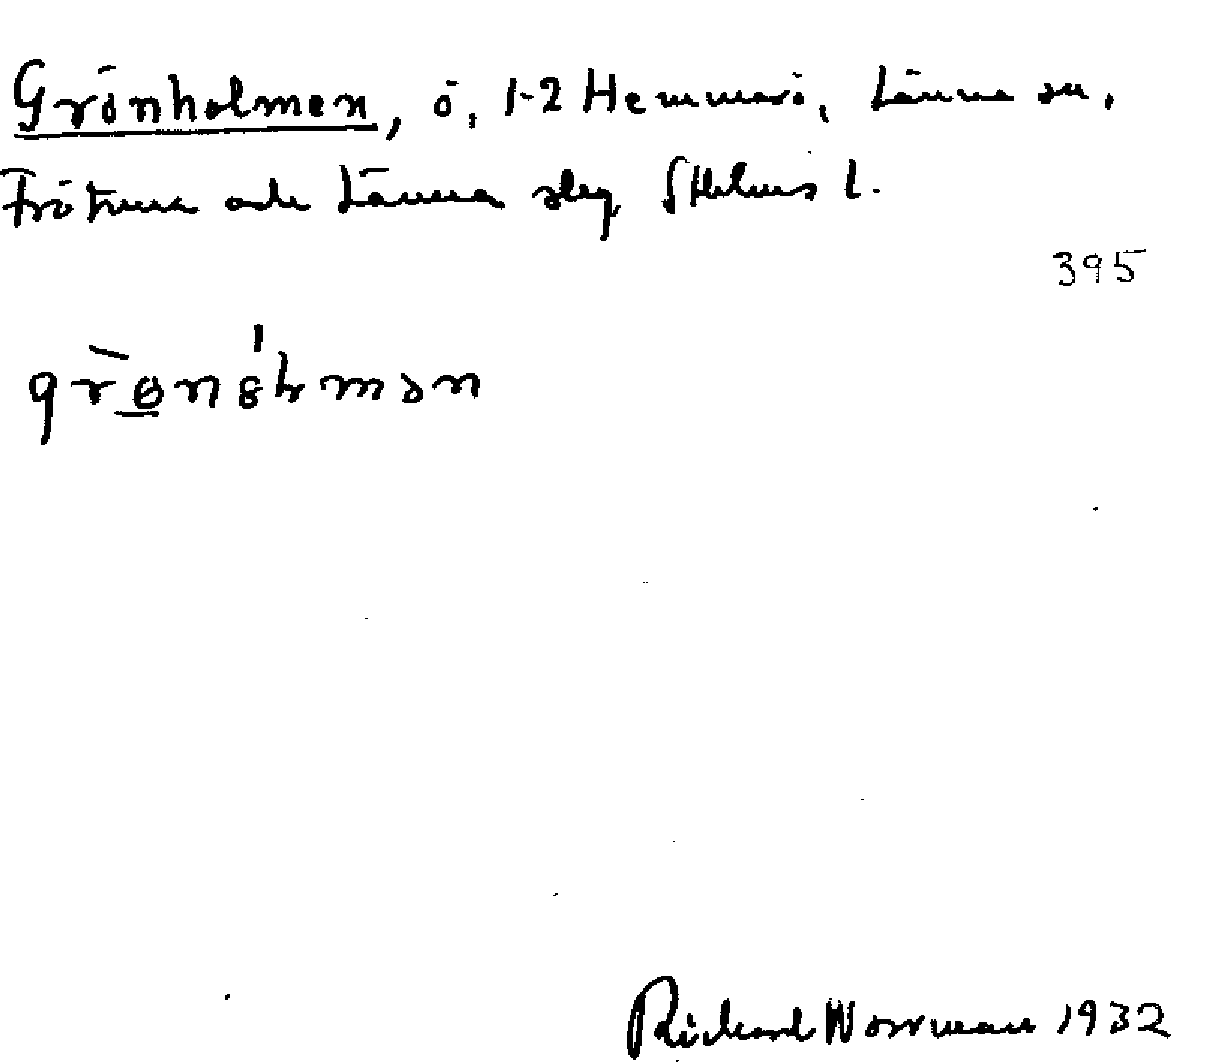 Grönholmen, ö, 1-2 Hemmarö, Länna sn,
Frötuna och Länna slg Sthlms l.
395
Rickard Norrman 1932